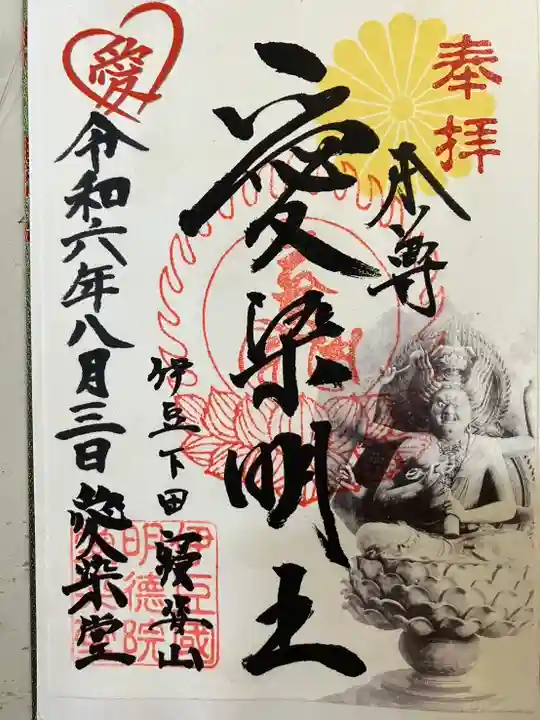 奉拝
本尊
愛染明王
伊豆下田 寝姿山
愛
令和六年八月三日 愛染堂
伊豆國
明徳院